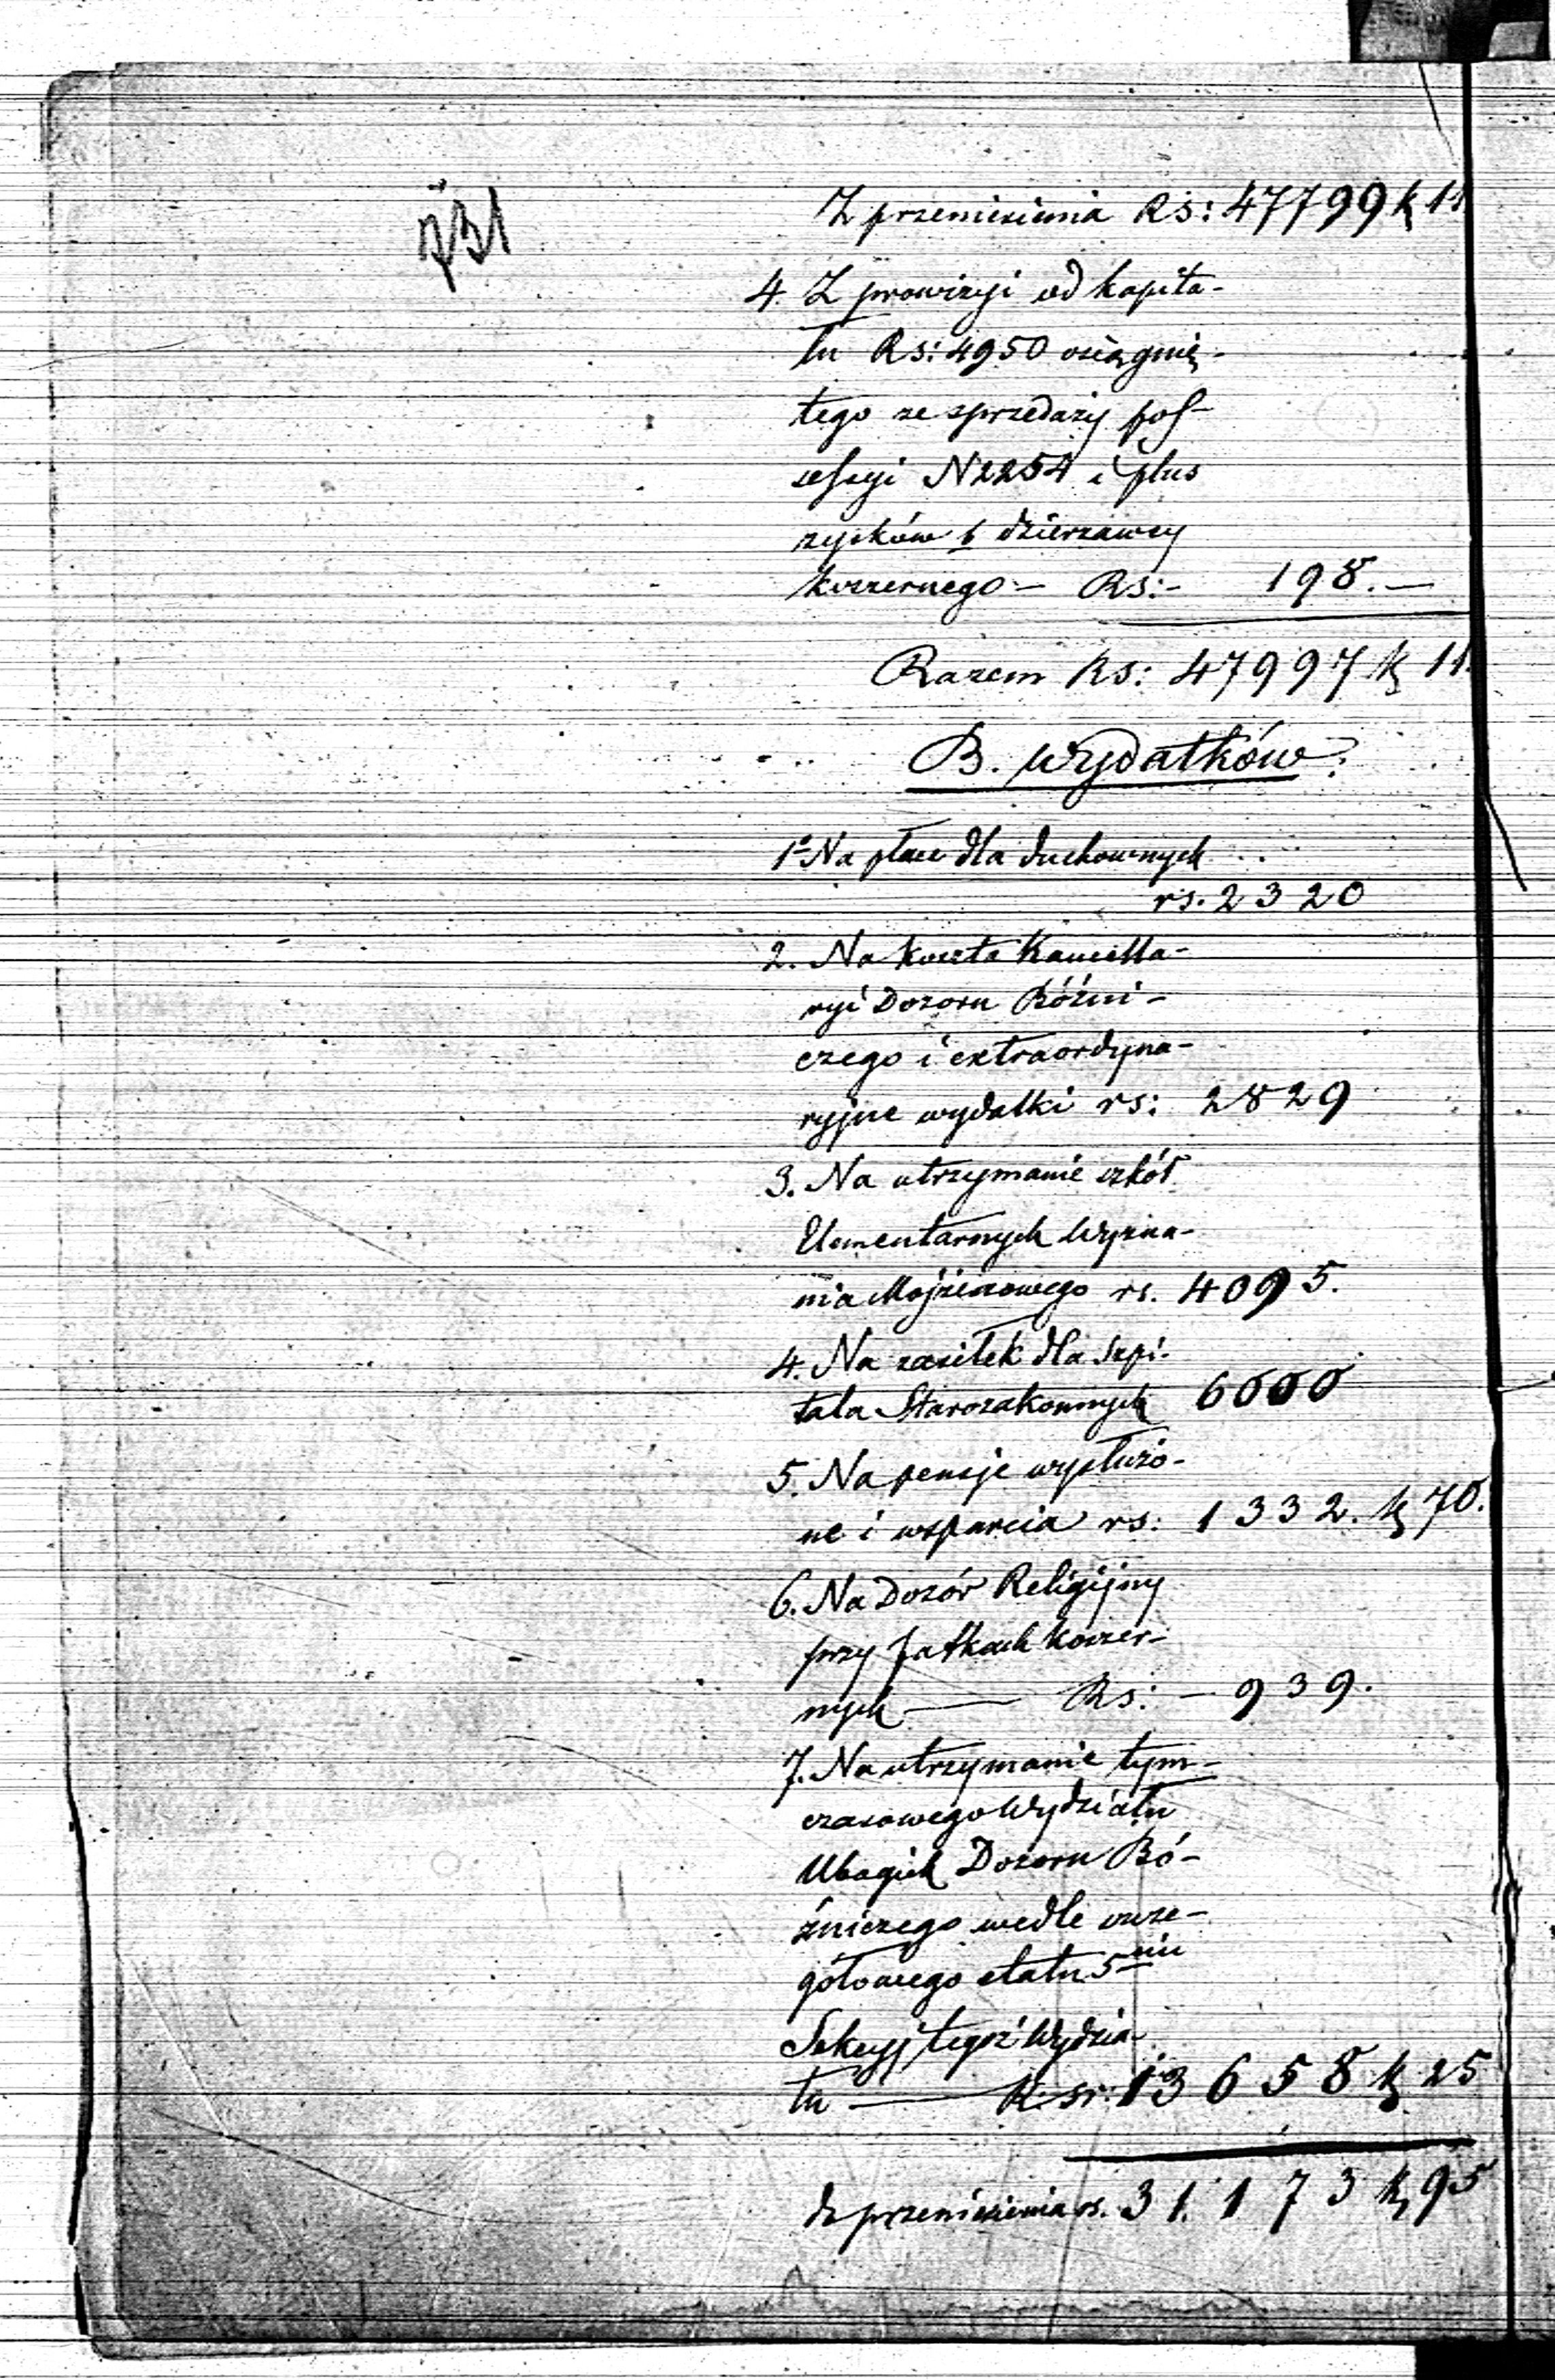 731
Z przeniesienia RS: 47799 k 11
4. Z prowizyi od kapita-
łu Rs: 4950 osiągnię-
tego ze sprzedaży pos-
sessyi N 2254 i plus
zysków b dzierżawcy
koszernego – Rs: - 198. —
Razem Rs: 47997 k 11.
B. Wydatków:
1o Na płace dla duchownych
rs. 2320
2. Na koszta Kancella-
ryi Dozoru Bóźni-
czego i extraordyna-
ryjne wydatki rs: 2829
3. Na utrzymanie szkół
Elementarnych Wyzna-
nia Mojżeszowego rs. 4095.
4. Na zasiłek dla Szpi-
tala Starozakonnych 6000
5. Na pensje wysłużo-
ne i wsparcia rs: 1332. k 70.
6. Na Dozór Religijny
przy Jatkach koszer-
nych — Rs: - 939.
7. Na utrzymanie tym-
czasowego Wydziału
Ubogich Dozoru Bó-
źniczego wedle szcze-
gółowego etatu 5ciu
Sekcyj tegoż Wydzia-
łu — R. sr: 13658 k 25
do przeniesienia rs. 31.173 k 95